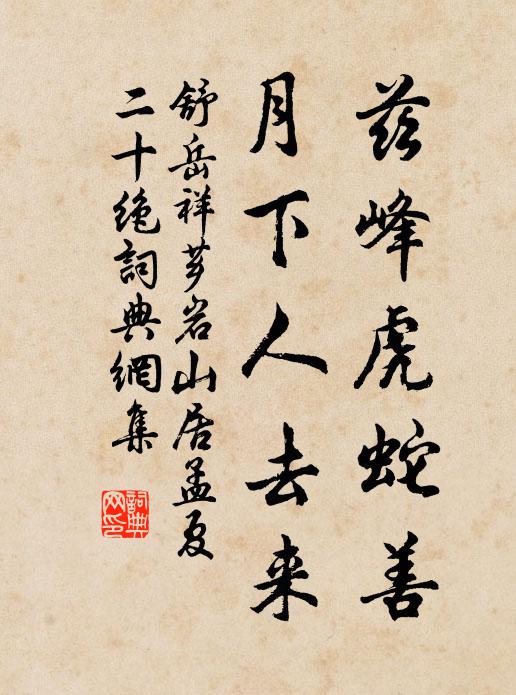 茲峰虎蛇善
月下人去来
舒岳祥芗岩山居孟夏
二十绝詞典網集
詞典网印